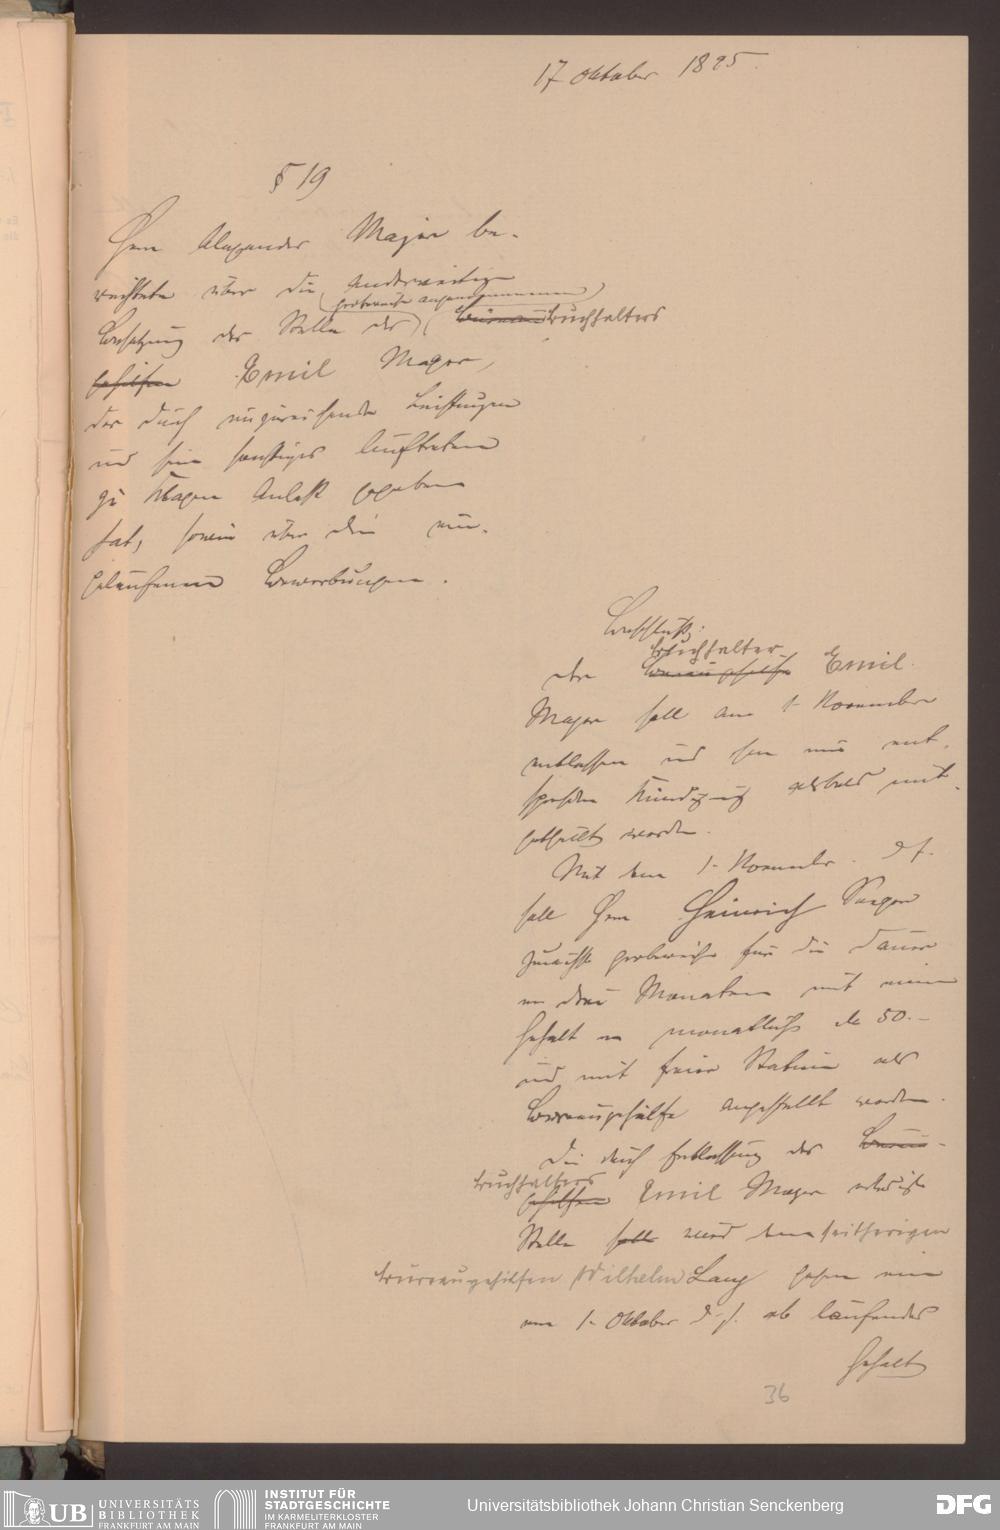 17 Oktober 1895.
§ 19
Herr Alexander Majer be-
richtete über die Anderweitige
(probeweise angenommenen)
Besetzung der Stelle des Bureau Buchhalters
gehilfen Emil Mayer,
der durch ungenügende Leistungen
und sein sonstiges Auftreten
zu Klagen Anlaß gegeben
hat, sowie über die ein-
gelaufenen Bewerbungen.
Beschluß:
Buchhalter
der Bureaugehilfe Emil
Mayer soll am 1. November
entlassen und ihm eine ent-
sprechende Kündigung alsbald mit-
getheilt werden.
Mit dem 1. November d. J.
soll Herr Heinrich
zunächst probeweise für die Dauer
von drei Monaten mit einem
Gehalt von monatlich M 50.-
und mit freier Station als
Bureaugehülfe angestellt werden.
Die durch Entlassung des Bureau-
Buchhalters
gehilfen Emil Mayer erledigte
Stelle soll wird dem seitherigen
Bureaugehilfen Wilhelm Lang gegen ein
vom 1. Oktober d. J. ab laufendes
Gehalt
36
UB UNIVERSITÄTS
BIBLIOTHEK
FRANKFURT AM MAIN
INSTITUT FÜR
STADTGESCHICHTE
IM KARMELITERKLOSTER
FRANKFURT AM MAIN
Universitätsbibliothek Johann Christian Senckenberg
DFG